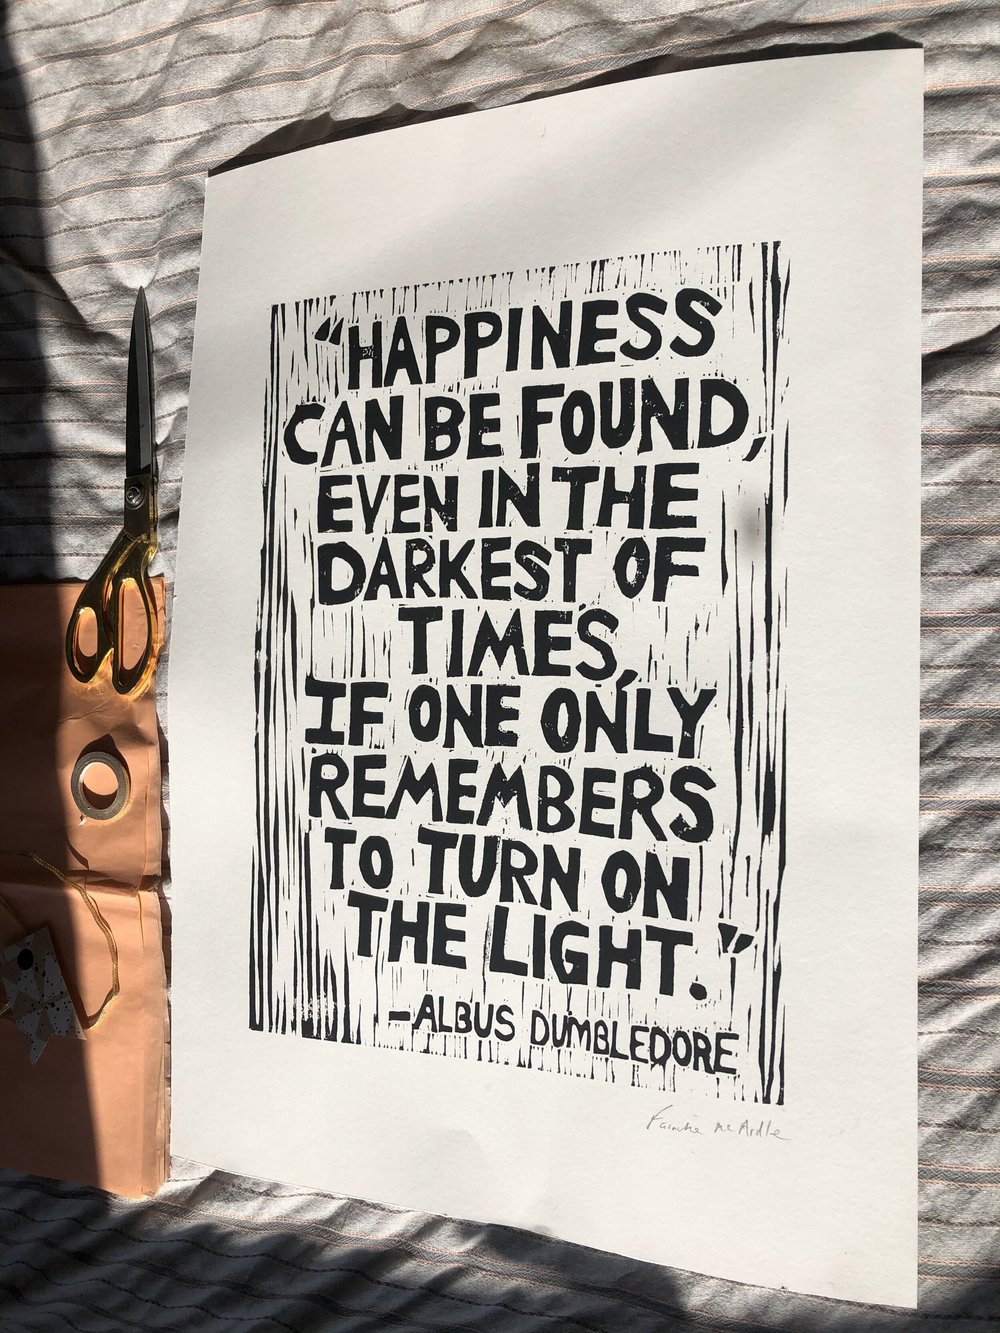 “HAPPINESS
CAN BE FOUND,
EVEN IN THE
DARKEST OF
TIMES,
IF ONE ONLY
REMEMBERS
TO TURN ON
THE LIGHT.”
–ALBUS DUMBLEDORE
Mc Ardle